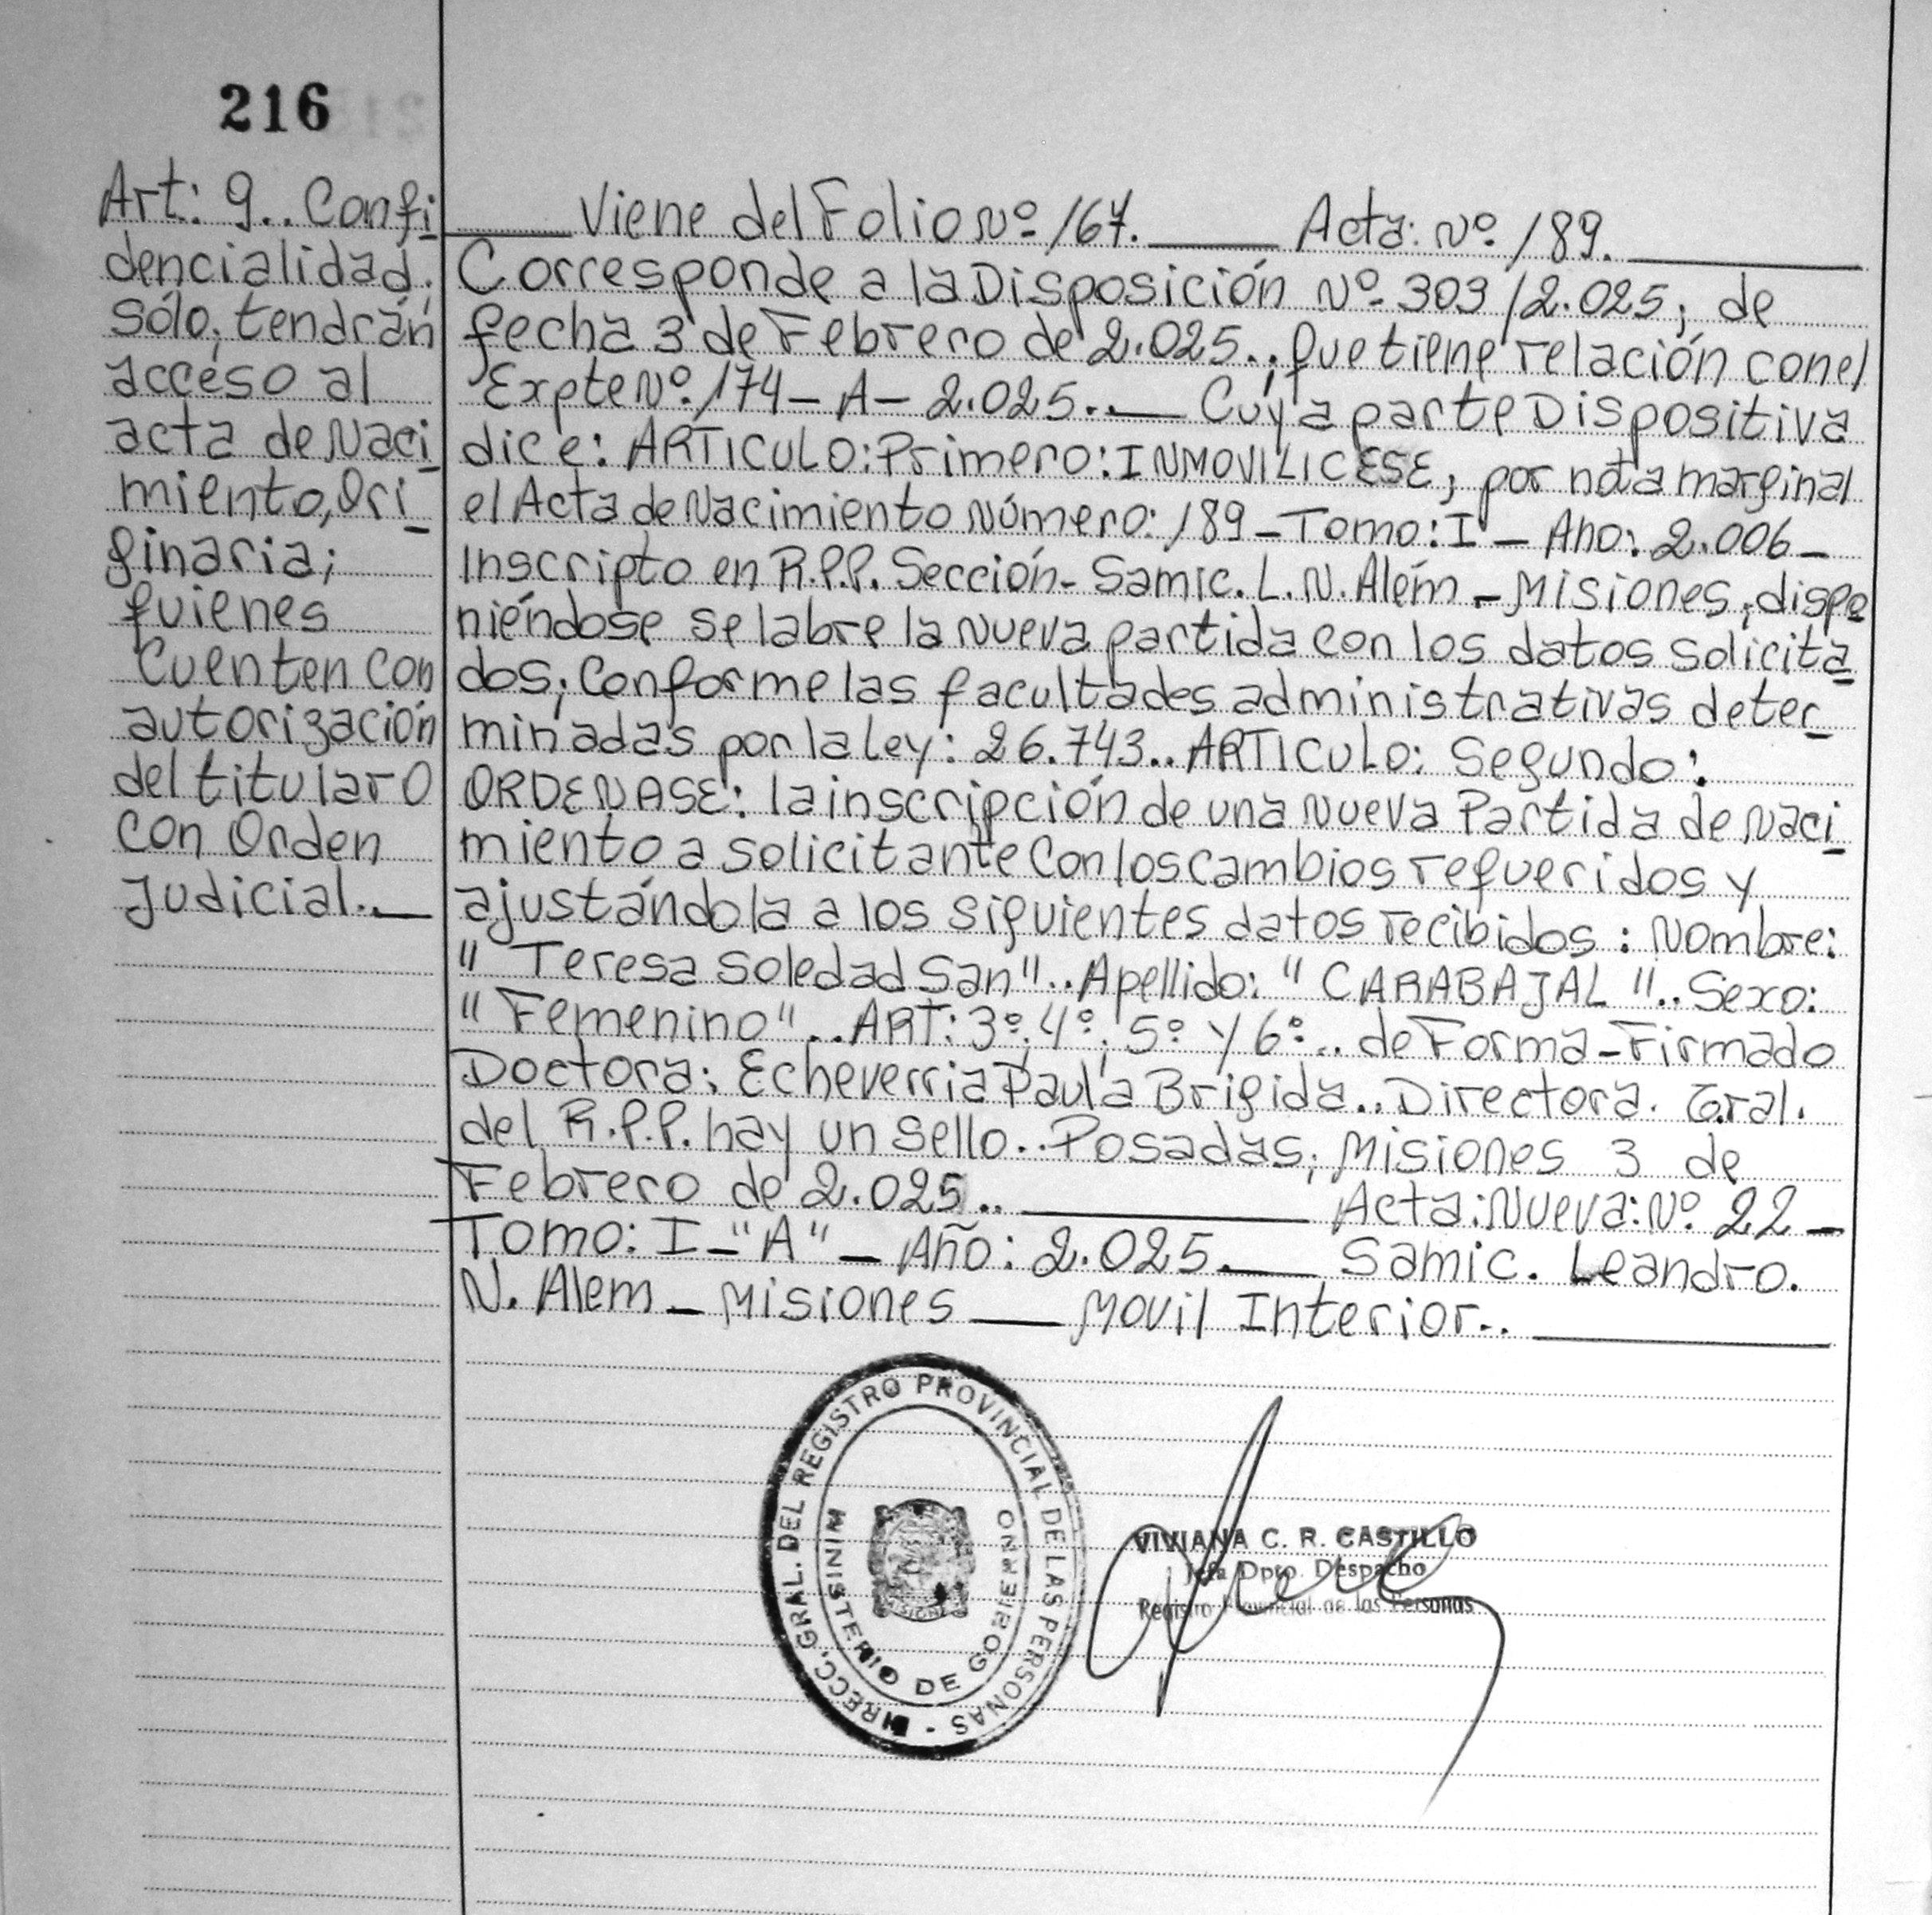 216
Art: 9.. Confi
dencialidad;
sólo; tendrán
acceso al
acta de Naci
miento, Ori
ginaria;
quienes
Cuenten con
autorización
del titular O
con Orden
Judicial..
Viene del Folio Nº 167. Acta: Nº 189.
Corresponde a la Disposición Nº 303/2.025; de
fecha 3 de Febrero de 2.025..; que tiene relación con el
Expte Nº 174 - A - 2.025.. Cuya parte Dispositiva
dice: ARTICULO: Primero: INMOVILICESE; por nota marginal
el Acta de Nacimiento Número: 189 - Tomo: I - Año: 2.006 -
Inscripto en R.P.P. Sección - Samic. L. N. Além - Misiones; dispo
niéndose se labre la nueva partida con los datos solicita
dos; Conforme las facultades administrativas deter
minadas por la Ley: 26.743.. ARTICULO: Segundo:
ORDENASE: la inscripción de una Nueva Partida de Naci
miento a solicitante Con los cambios requeridos y
ajustándola a los siguientes datos recibidos: Nombre:
" Teresa Soledad San".. Apellido: " CARABAJAL ".. Sexo:
" Femenino".. ART: 3º; 4º; 5º y 6º.. de Forma - Firmado
Doctora: Echeverria Paula Brigida.. Directora. Gral.
del R.P.P. hay un sello.. Posadas; Misiones 3 de
Febrero de 2.025.. Acta: Nueva: Nº 22 -
Tomo: I - "A" - Año: 2.025. Samic. Leandro.
N. Alem - Misiones Movil Interior..
DIRECC. GRAL. DEL REGISTRO PROVINCIAL DE LAS PERSONAS -
MINISTERIO DE GOBIERNO
VIVIANA C. R. CASTILLO
Jefa Dpto. Despacho
Registro Provincial de las Personas